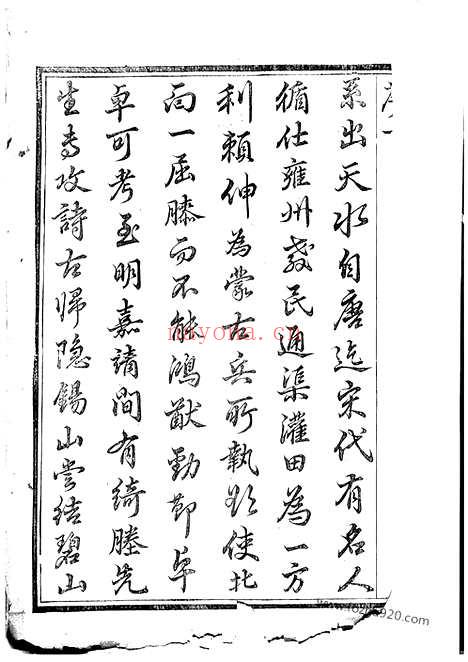 系出天水自唐迄宋代有名人
循仕雍州教民通渠灌田為一方
利賴伸為蒙古兵所執欲使北
面一屈膝而不能鴻猷勁節卓
卓可考至明嘉靖間有綺塍先
生專攻詩古歸隱錫山嘗結碧山
nayona.cn